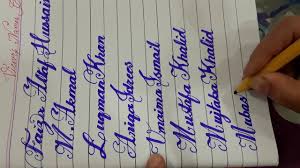 Faiza Altaf Hussain
M. Akmal
Luqman Khan
Aniqa Idrees
Umaima Ismail
Mustafa Khalid
Mujtaba Khalid
Mubas